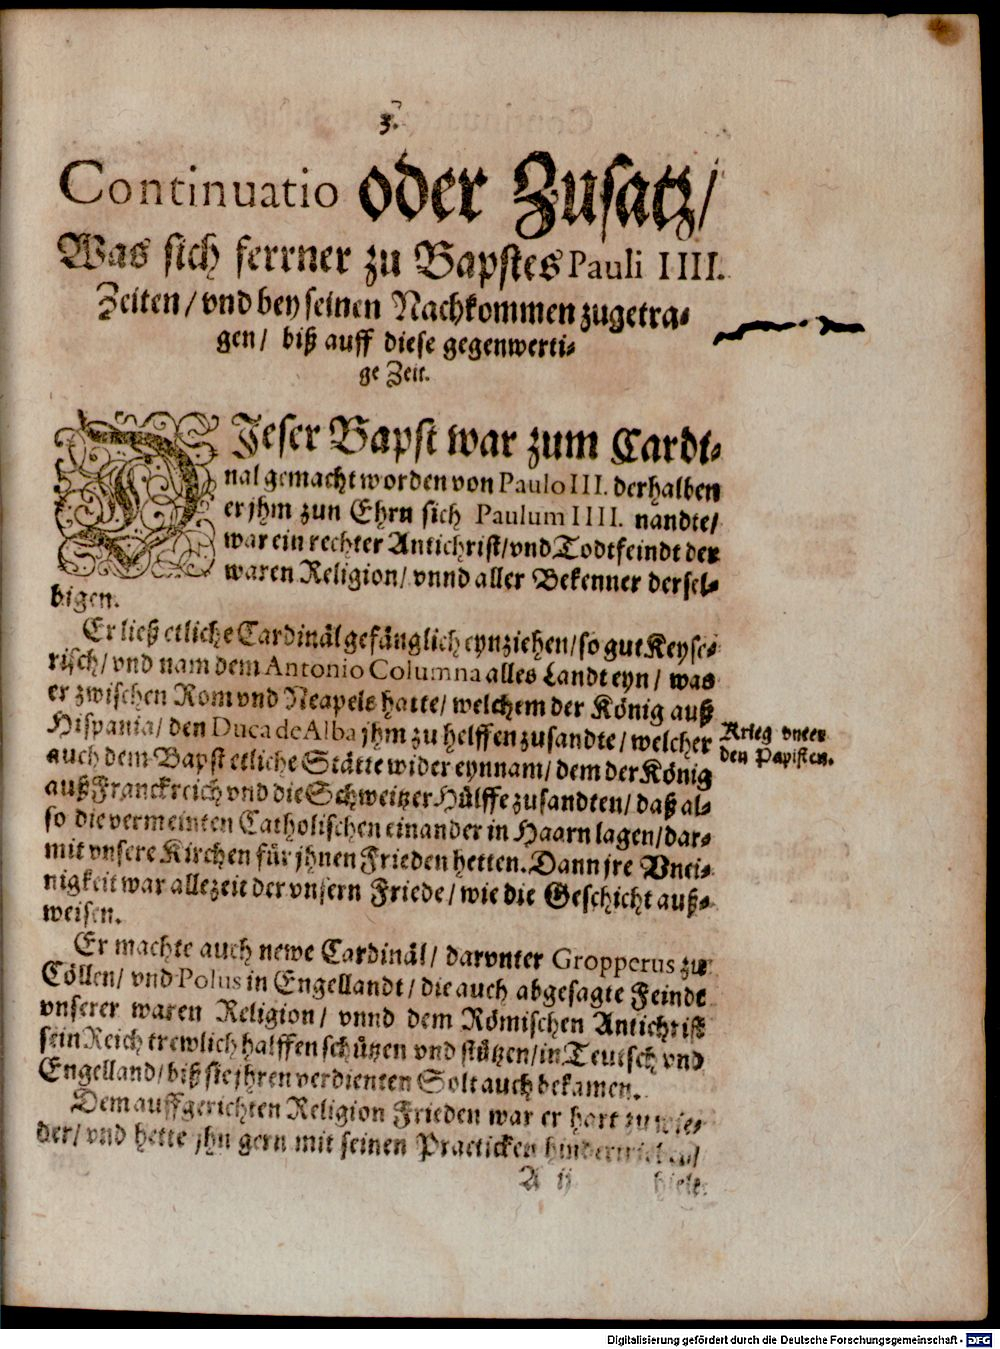 3.
Continuatio oder Zusatz/
Was sich ferrner zu Bapstes Pauli IIII.
Zeiten/ vnd bey seinen Nachkommen zugetra-
gen/ biß auff diese gegenwerti-
ge Zeit.
DIeser Bapst war zum Cardi-
nal gemacht worden von Paulo III. derhalben
er jhm zun Ehrn sich Paulum IIII. nandte/
war ein rechter Antichrist/ vnd Todtfeindt der
waren Religion/ vnnd aller Bekenner dersel-
bigen.
Er ließ etliche Cardinäl gefänglich eynziehen/ so gut Keyse-
risch/ vnd nam dem Antonio Columna alles Landt eyn/ was
er zwischen Rom vnd Neapels hatte/ welchem der König auß
Hispania/ den Duca de Alba jhm zu helffen zusandte/ welcher
auch dem Bapst etliche Stätte wider eynnam/ dem der König
auß Franckreich vnd die Schweitzer Hülffe zusandten/ daß al-
so die vermeinten Catholischen einander in Haarn lagen/ dar-
mit vnsere Kirchen für jhnen Frieden hetten. Dann jre Vnei-
nigkeit war allezeit der vnsern Friede/ wie die Geschicht auß-
weisen.
Krieg vnter
den Papisten.
Er machte auch newe Cardinäl/ darvnter Gropperus zu
Cöllen/ vnd Polus in Engellandt/ die auch abgesagte Feinde
vnserer waren Religion/ vnnd dem Römischen Antichrist
sein Reich trewlich halffen schützen vnd stützen/ in Teutsch vnd
Engelland/ biß sie jhren verdienten Solt auch bekamen.
Dem auffgerichten Religion Frieden war er hart zu wie-
der/ vnd hette jhn gern mit seinen Practicken
A ij hielt
Digitalisierung gefördert durch die Deutsche Forschungsgemeinschaft - DFG